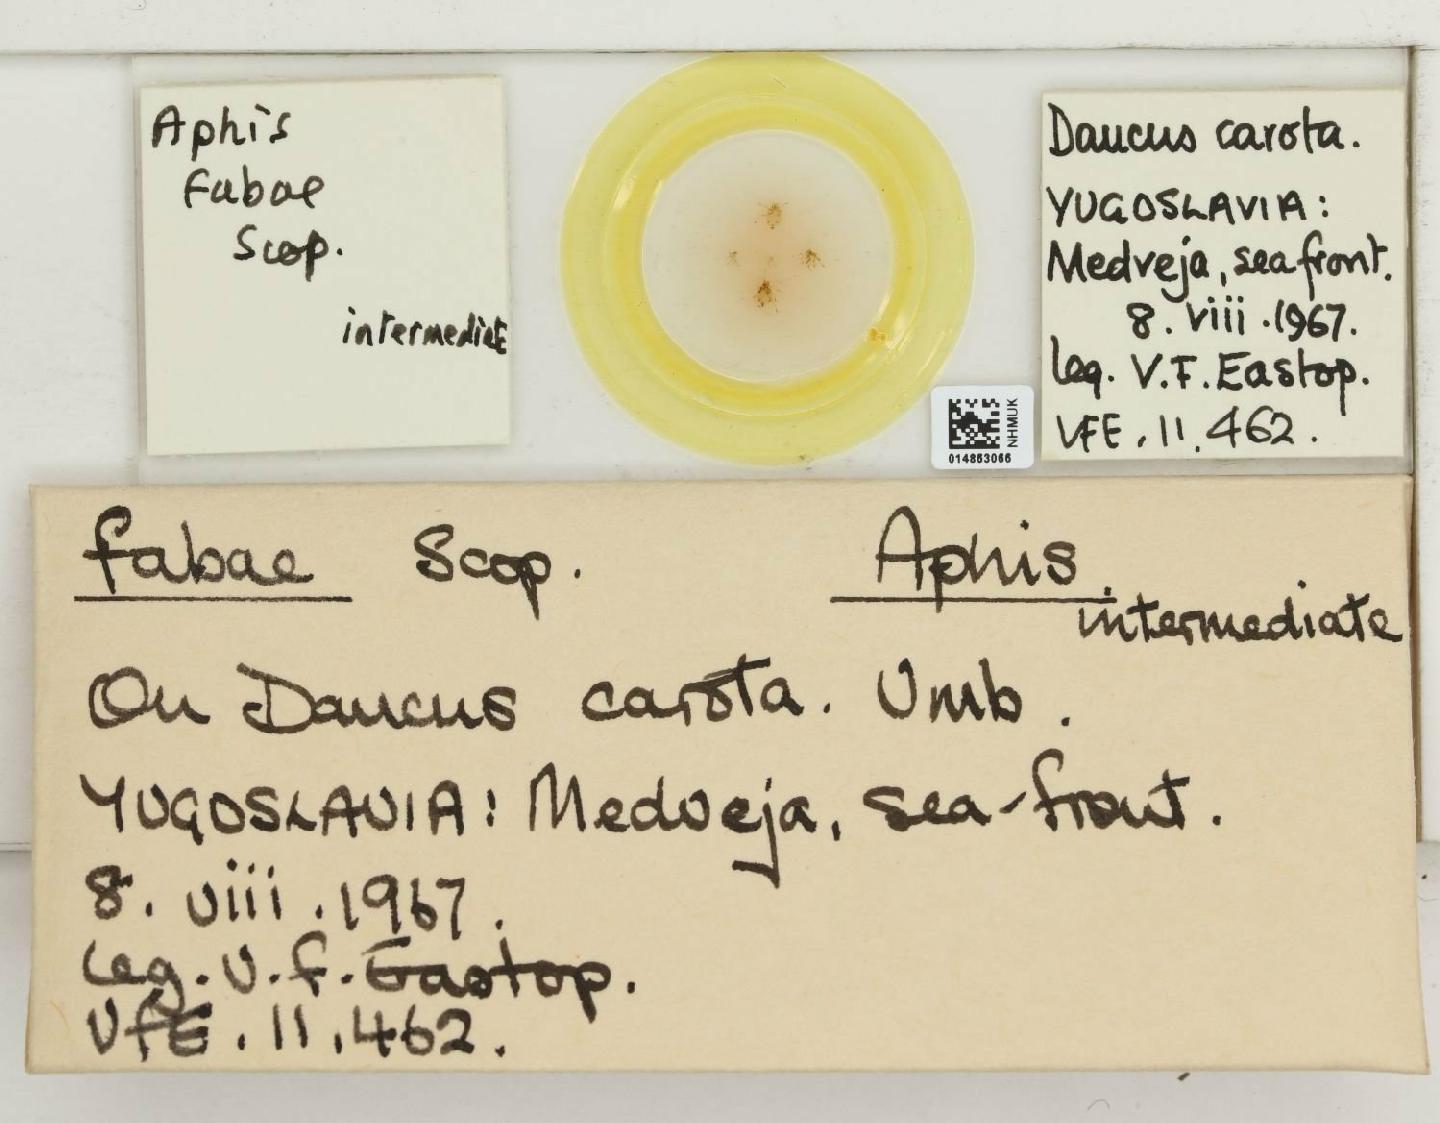 Aphis
Fabae
Scop.
intermediate
NHMUK
014853066
Daucus carota.
YUGOSLAVIA:
Medveja, sea front.
8. viii. 1967.
leg. V.F. Eastop.
VFE. 11. 462.
fabae Scop. Aphis.
intermediate
On Daucus carota. Umb.
YUGOSLAVIA: Medveja, sea-front.
8. viii. 1967.
leg. V. F. Eastop.
VFE. 11. 462.